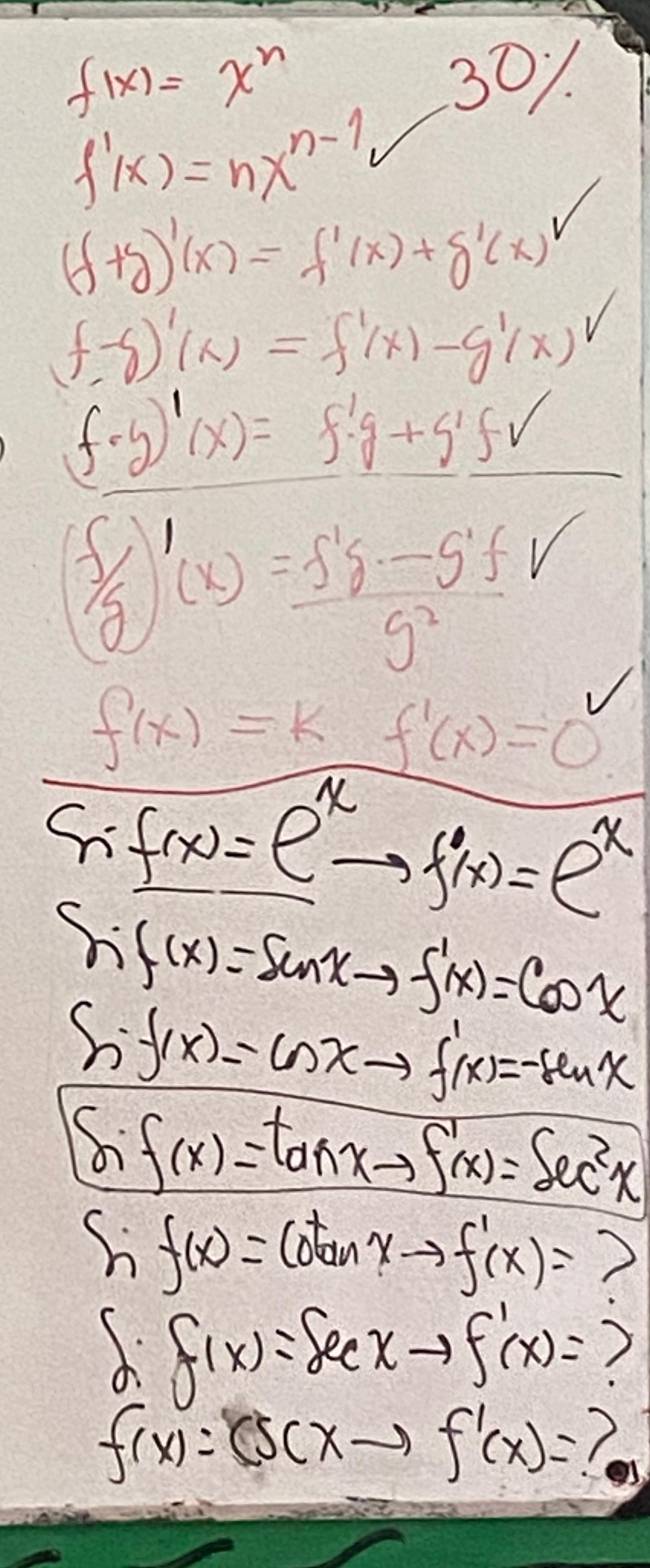 f(x) = xⁿ 30%
f'(x) = nxⁿ⁻¹ ✓
(f+g)'(x) = f'(x) + g'(x) ✓
(f-g)'(x) = f'(x) - g'(x) ✓
(f·g)'(x) = f'·g + g'f ✓
(f/g)'(x) = (f'g - g'f)/g² ✓
f(x) = K f'(x) = 0 ✓
Si f(x) = eˣ → f'(x) = eˣ
Si f(x) = Senx → f'(x) = Cos x
Si f(x) = cos x → f'(x) = -sen x
Si f(x) = tan x → f'(x) = Sec²x
Si f(x) = Cotan x → f'(x) = ?
Si f(x) = Sec x → f'(x) = ?
f(x) = CSC x → f'(x) = ?